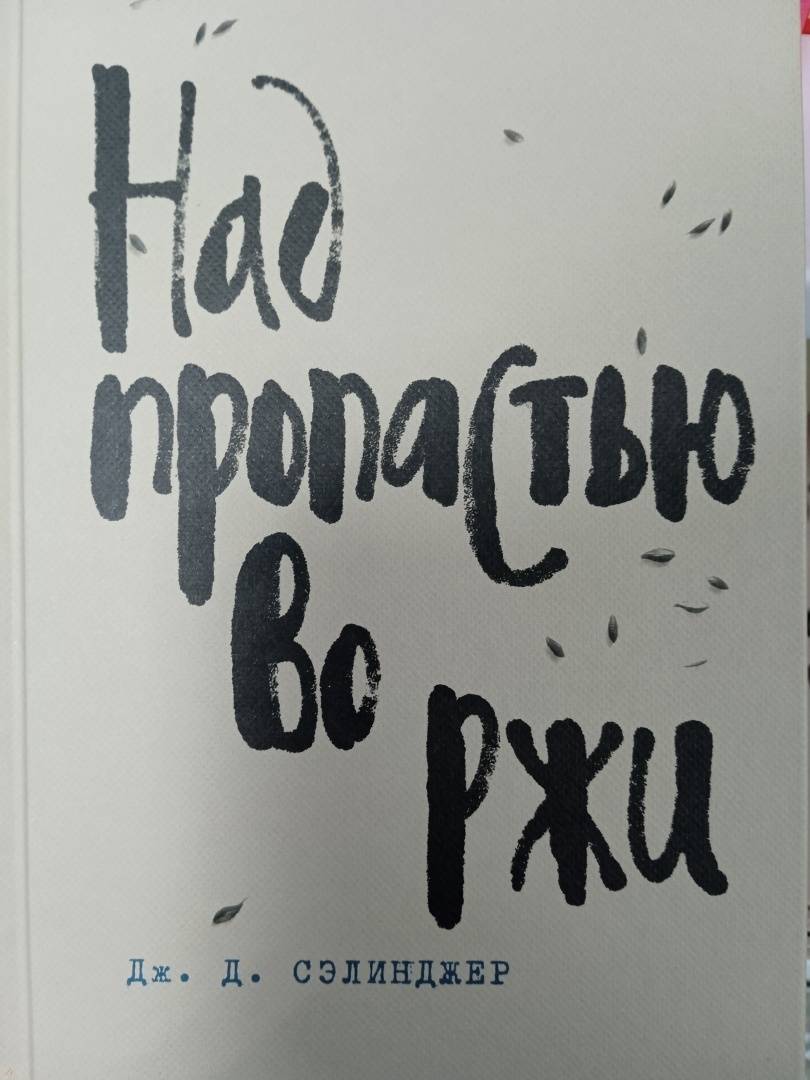 Над
пропастью
во
ржи
Дж. Д. СЭЛИНДЖЕР